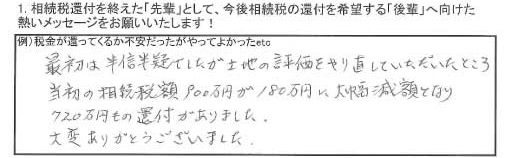 1. 相続税還付を終えた「先輩」として、今後相続税の還付を希望する「後輩」へ向けた
熱いメッセージをお願いいたします!
例)税金が還ってくるか不安だったがやってよかったetc
最初は半信半疑でしたが土地の評価をやり直していただいたところ
当初の相続税額900万円が180万円に大幅減額となり
720万円もの還付がありました。
大変ありがとうございました。